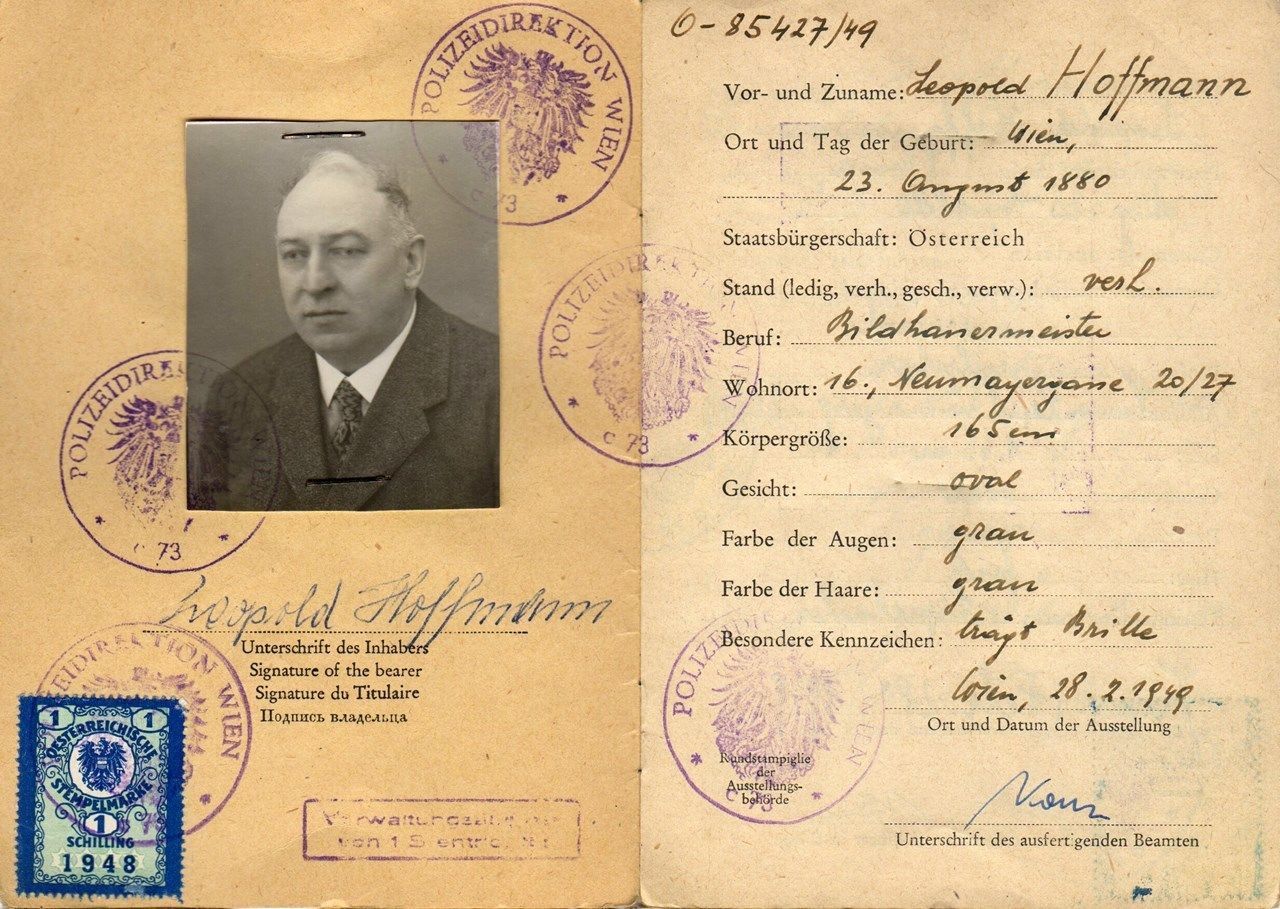 POLIZEIDIREKTION WIEN
C 73
POLIZEIDIRE
73
Leopold Hoffmann
Unterschrift des Inhabers
Signature of the bearer
Signature du Titulaire
Подпись владельца
EIDIREKTION WIEN
1 1
OESTERREICHISCHE
STEMPELMARKE
1
SCHILLING
1948
von 1 S
O-85427/49
Vor- und Zuname: Leopold Hoffmann
Ort und Tag der Geburt: Wien,
23. August 1880
Staatsbürgerschaft: Österreich
Stand (ledig, verh., gesch., verw.): verh.
Beruf: Bildhauermeister
Wohnort: 16., Neumayergasse 20/27
Körpergröße: 165 cm
Gesicht: oval
Farbe der Augen: grau
Farbe der Haare: grau
Besondere Kennzeichen: trägt Brille
Wien, 28.2.1949
Ort und Datum der Ausstellung
Rundstampiglie
der
Ausstellungs-
behörde
Unterschrift des ausfertigenden Beamten
POLIZEIDIREKTION WIEN
C 73
POLIZEI WIEN
C 73